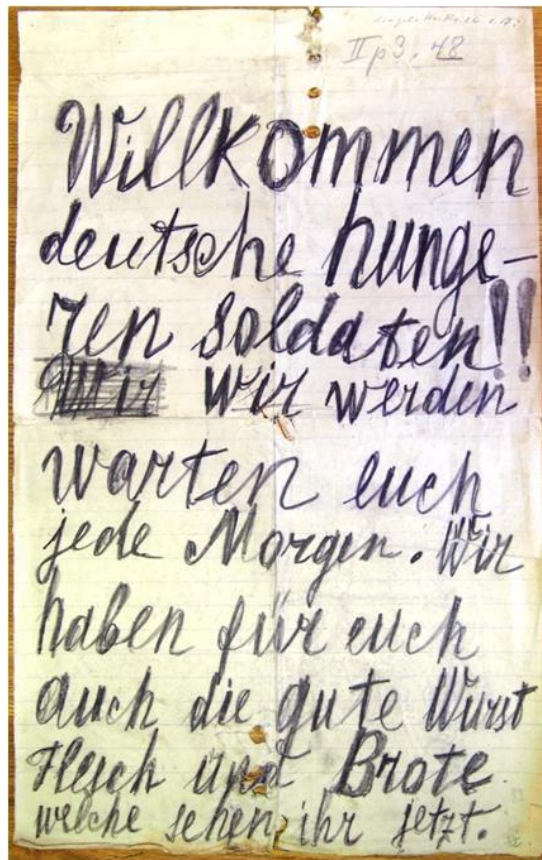 II p3. 48
Willkommen
deutsche hunge-
ren soldaten!!
Wir Wir werden
warten euch
jede Morgen. Wir
haben für euch
auch die gute Wurst
Flejch und Brote
welche sehen ihr jetzt.